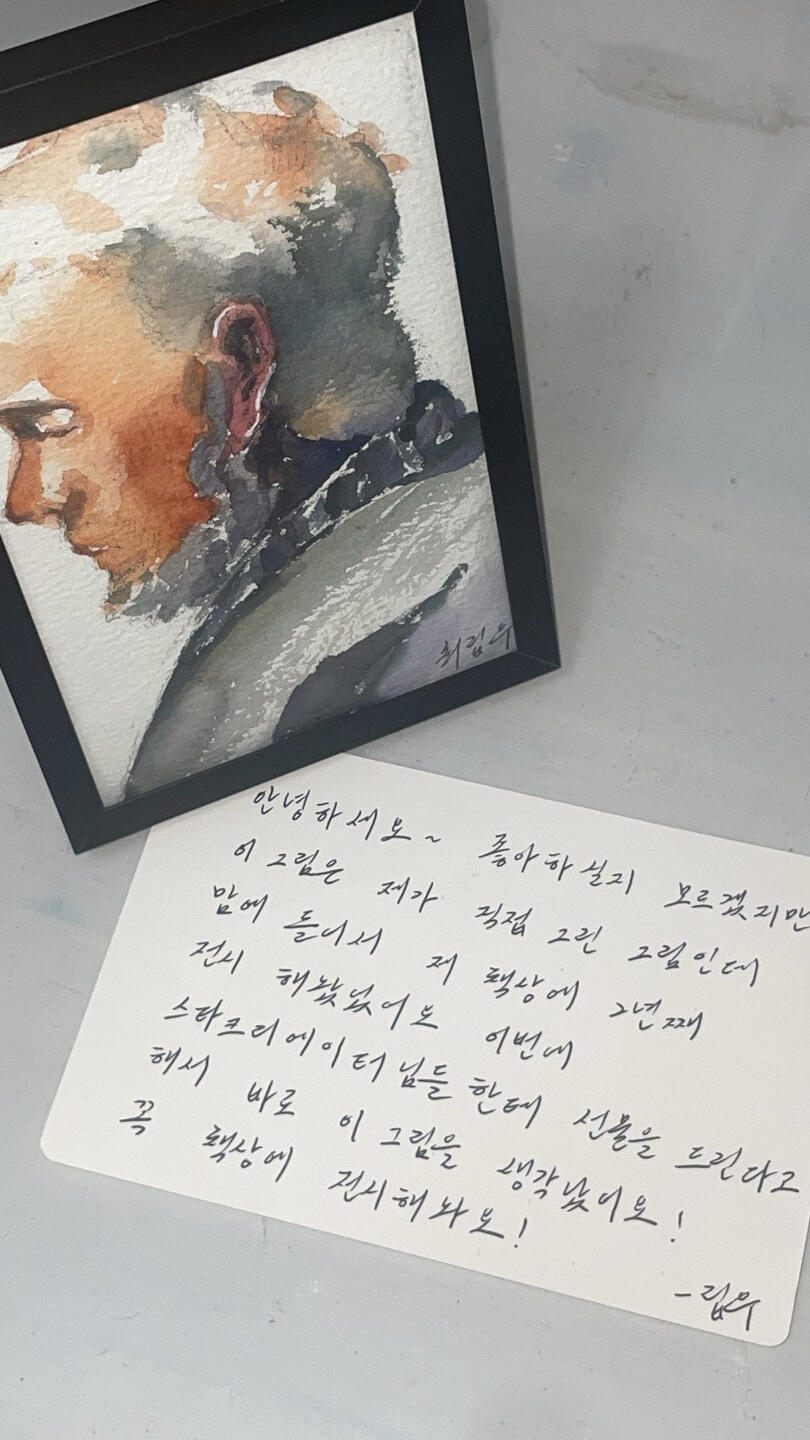 최림우
안녕하세요~ 좋아하실지 모르겠지만
이 그림은 제가 직접 그린 그림인데
맘에 들어서 제 책상에 2년째
전시 해놨었어요 이번에
스타크리에이터님들 한테 선물을 드린다고
해서 바로 이 그림을 생각났어요!
꼭 책상에 전시해놔요!
-림우